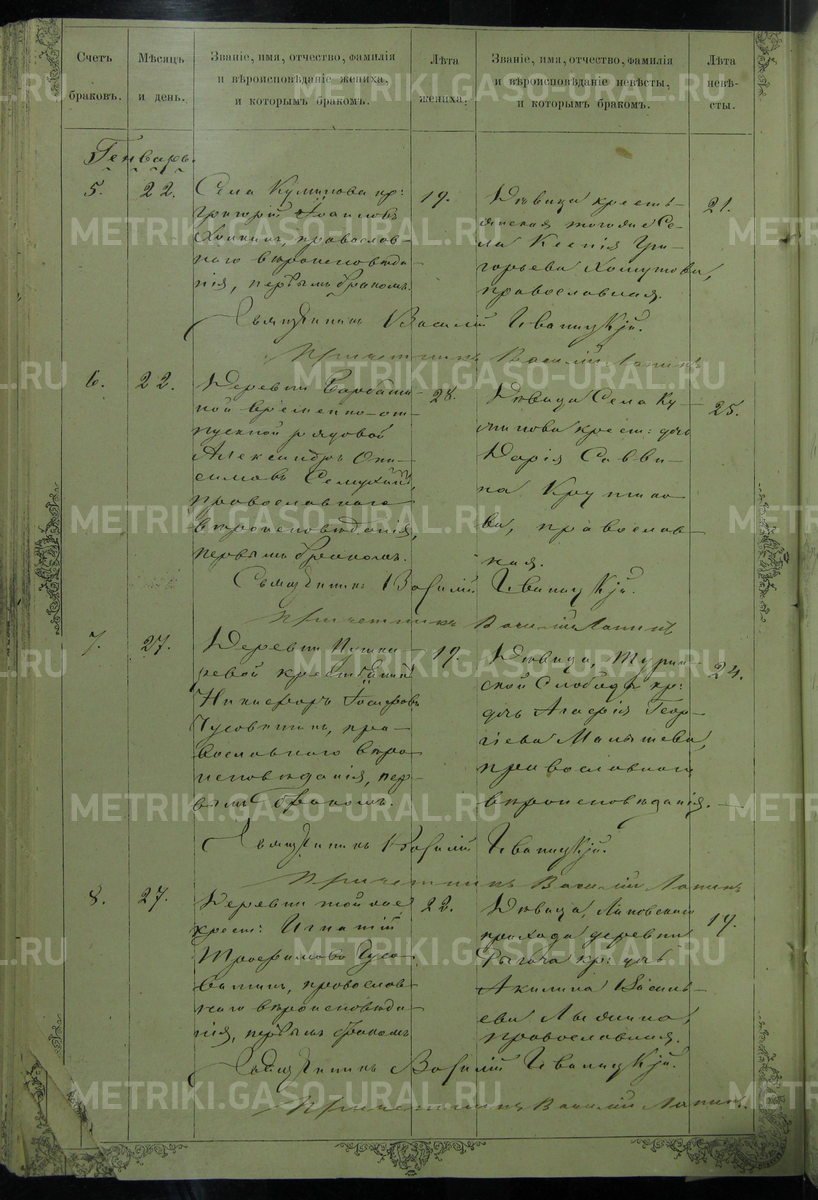 Счетъ браковъ.
Мѣсяцъ и день.
Званіе, имя, отчество, фамилія
и вѣроисповѣданіе жениха,
и которымъ бракомъ.
Лѣта жениха.
Званіе, имя, отчество, фамилія
и вѣроисповѣданіе невѣсты,
и которымъ бракомъ.
Лѣта невѣ-
сты.
Генварь.
5.
22.
Села кр:
Григорій
православ-
наго вѣроисповѣда-
нія, первымъ бракомъ.
19.
Дѣвица кресть-
янская того же Се-
ла Ксенія Гри-
горьева Хомутова,
православная.
21.
Священникъ Василій
Причетникъ Василій Лапинъ
6.
22.
Деревни
ной временно-от-
пускной рядовой
Александръ Они-
симовъ
православнаго
вѣроисповѣданія,
первымъ бракомъ.
28.
Дѣвица Села Ку-
крест: дочь
Дарія Савви-
на
ва, православ-
ная.
25.
Священникъ Василій
Причетникъ Василій Лапинъ
7.
27.
Деревни Пушка-
ревой крестьянинъ
Никифоръ Іосифовъ
Чусовитинъ, пра-
вославнаго вѣро-
исповѣданія, пер-
вымъ бракомъ.
19.
Дѣвица, Турин-
ской Слободы кр:
дочь Агафія Геор-
гіева Малышева,
православнаго
вѣроисповѣданія.
24.
Священникъ Василій
Причетникъ Василій Лапинъ
8.
27.
Деревни той же
крест: Игнатій
Трофимовъ Чусо-
витинъ, православ-
наго вѣроисповѣда-
нія, первымъ бракомъ
22.
Дѣвица,
прихода деревни
кр: дочь
Акилина Василь-
ева
православная.
19.
Священникъ Василій
Причетникъ Василій Лапинъ.
METRIKI.GASO-URAL.RU